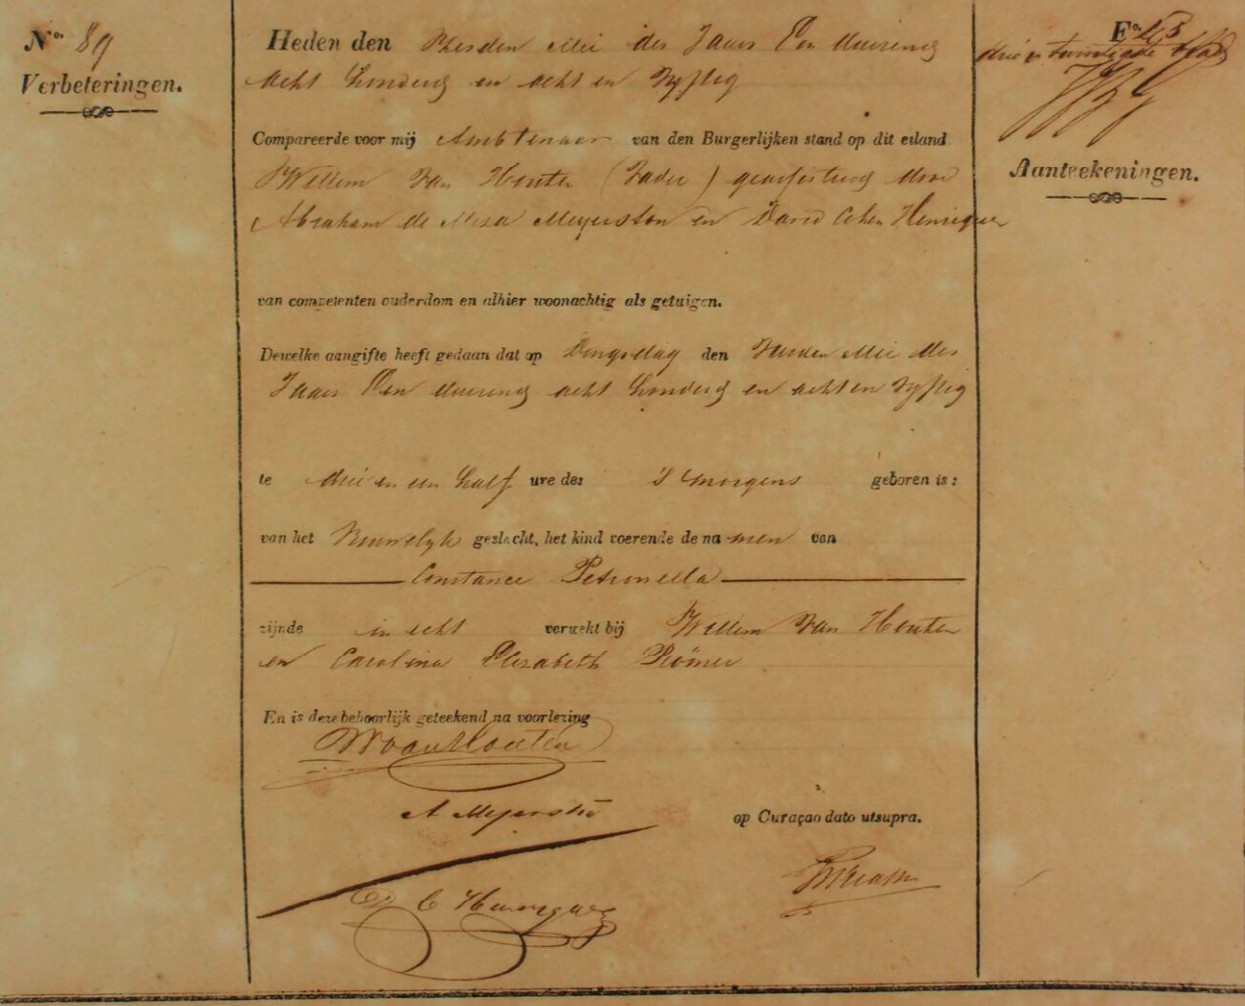 No. 89
Verbeteringen.
Heden den Mei des Jaars Een duizend
acht honderd en acht en vyftig
Compareerde voor mij Ambtenaar van den Burgerlijken stand op dit eiland
Willem Van Houten (Vader) geassisteerd door
Abraham de Meza Meyerston en David Cohen Henriquez
van competenten ouderdom en alhier woonachtig als getuigen.
Dewelke aangifte heeft gedaan dat op Dingsdag den Mei des
Jaars Een duizend acht honderd en acht en vyftig
te drie en een half ure des 's morgens geboren is:
van het Vrouwelyk geslacht, het kind voerende de na men van
Constance Petronella
zijnde in echt verwekt bij Willem Van Houten
en Carolina Elizabeth Römer
En is deze behoorlijk geteekend na voorlezing
WvanHouten
A Meyerston
op Curaçao dato utsupra.
D C Henriquez
Fo.
drie en twintigste blad
Aanteekeningen.